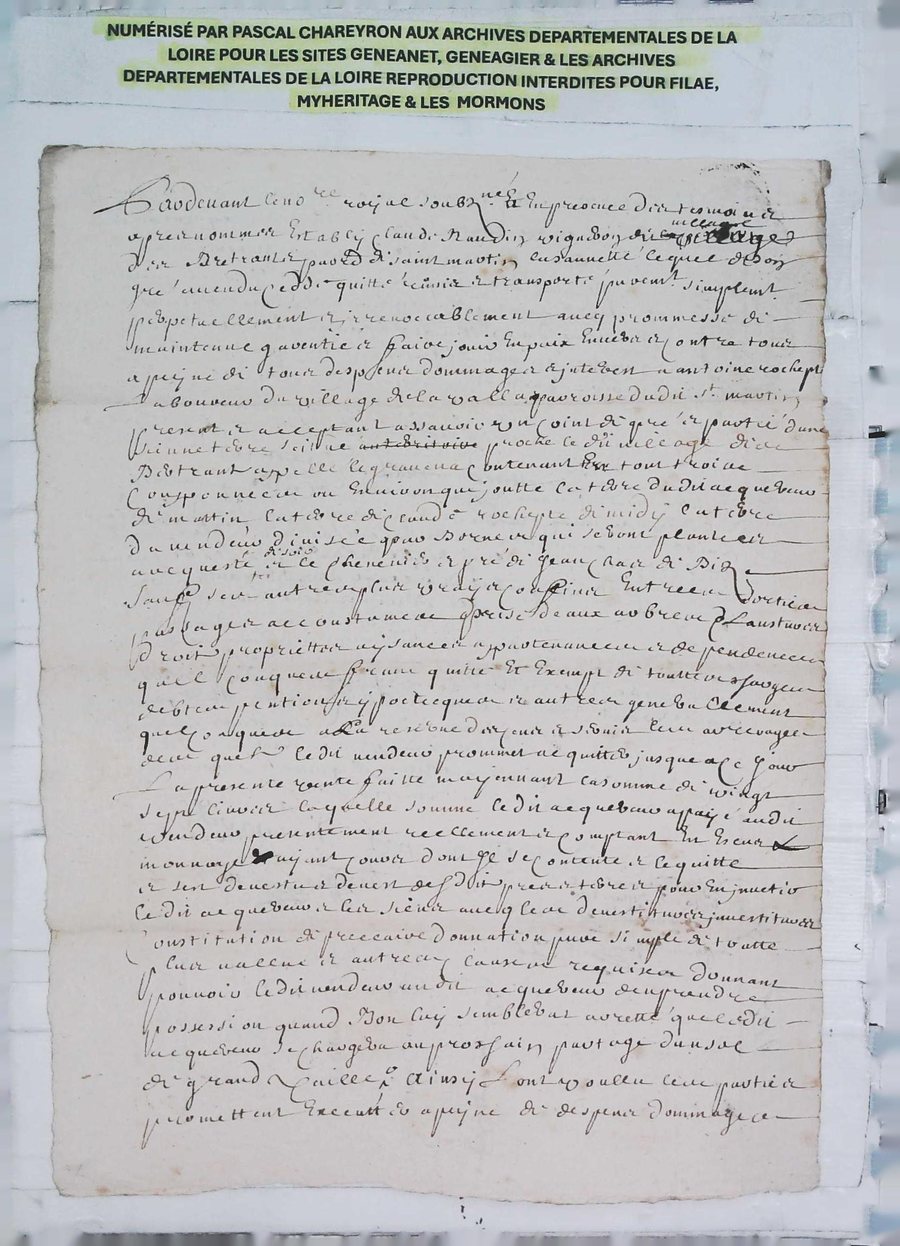 NUMÉRISÉ PAR PASCAL CHAREYRON AUX ARCHIVES DEPARTEMENTALES DE LA
LOIRE POUR LES SITES GENEANET, GENEAGIER & LES ARCHIVES
DEPARTEMENTALES DE LA LOIRE REPRODUCTION INTERDITES POUR FILAE,
MYHERITAGE & LES MORMONS
Pardevant le no.re royal soubz.né & En presence des tesmoins
village
apres nommes Estably Claude vigneron du
des Bretrants parr. de saint martin la sauvette lequel de son
gré a vendu cedde quitté remis et transporté purem.t simplem.t
perpetuellement et irrevocablement avecq prommesse de
maintenir garentir et faire jouir En paix Envers et contre tous
a peyne de tous despens dommages et interest a antoine rochept
laboureur du village de la valla parroisse dudit st. martin
present et acceptant assavoir un coint de pré et partie d'une
sienne terre scittué proche le dit village des
Bertrant appellé le contenant En tout trois
Couponnees ou Environ qui joutte la terre dudit acquereur
de mattin la terre de claude rochepte de midy la terre
du vendeur divisée par Bornes qui seront plantées
avecq de soir et le et pré de Jean de Bize
sauf ses autres plus vrays confins Entrées sorties
passages accoustumés prise d'eaux arbres
droit proprietter aysances appartenances et dependences
quelconques franc quitte Et Exempt de touttes charges
debtes pentions ypotecques et autres generallement
quelconques a La reserve des et servis les arreyrages
desquels ledit vendeur promet acquitter jusques a ce jour
La presente vente faitte moyennant la somme de vingt
sept livres laquelle somme ledit acquereur a payé audit
vendeur presentement reellement et comptant En Escus &
monnoye ayant cours dont Il se contente et le quitte
et sest devestu et devest desdit pres et terres pour En
le dit acquereur et les siens avecq les devestitures investitures
Constitution de precaire donnation pure simple de toutte
plus vallue et autres clauses requises donnant
pouvoir le dit vendeur au dit acquereur d'en prendre
possession quand Bon luy semblerat que le dit
acquereur se chargera au prosshain partage
de grand taille Ainsy Lont voullu les parties
promettent Executter a peyne de despens dommages